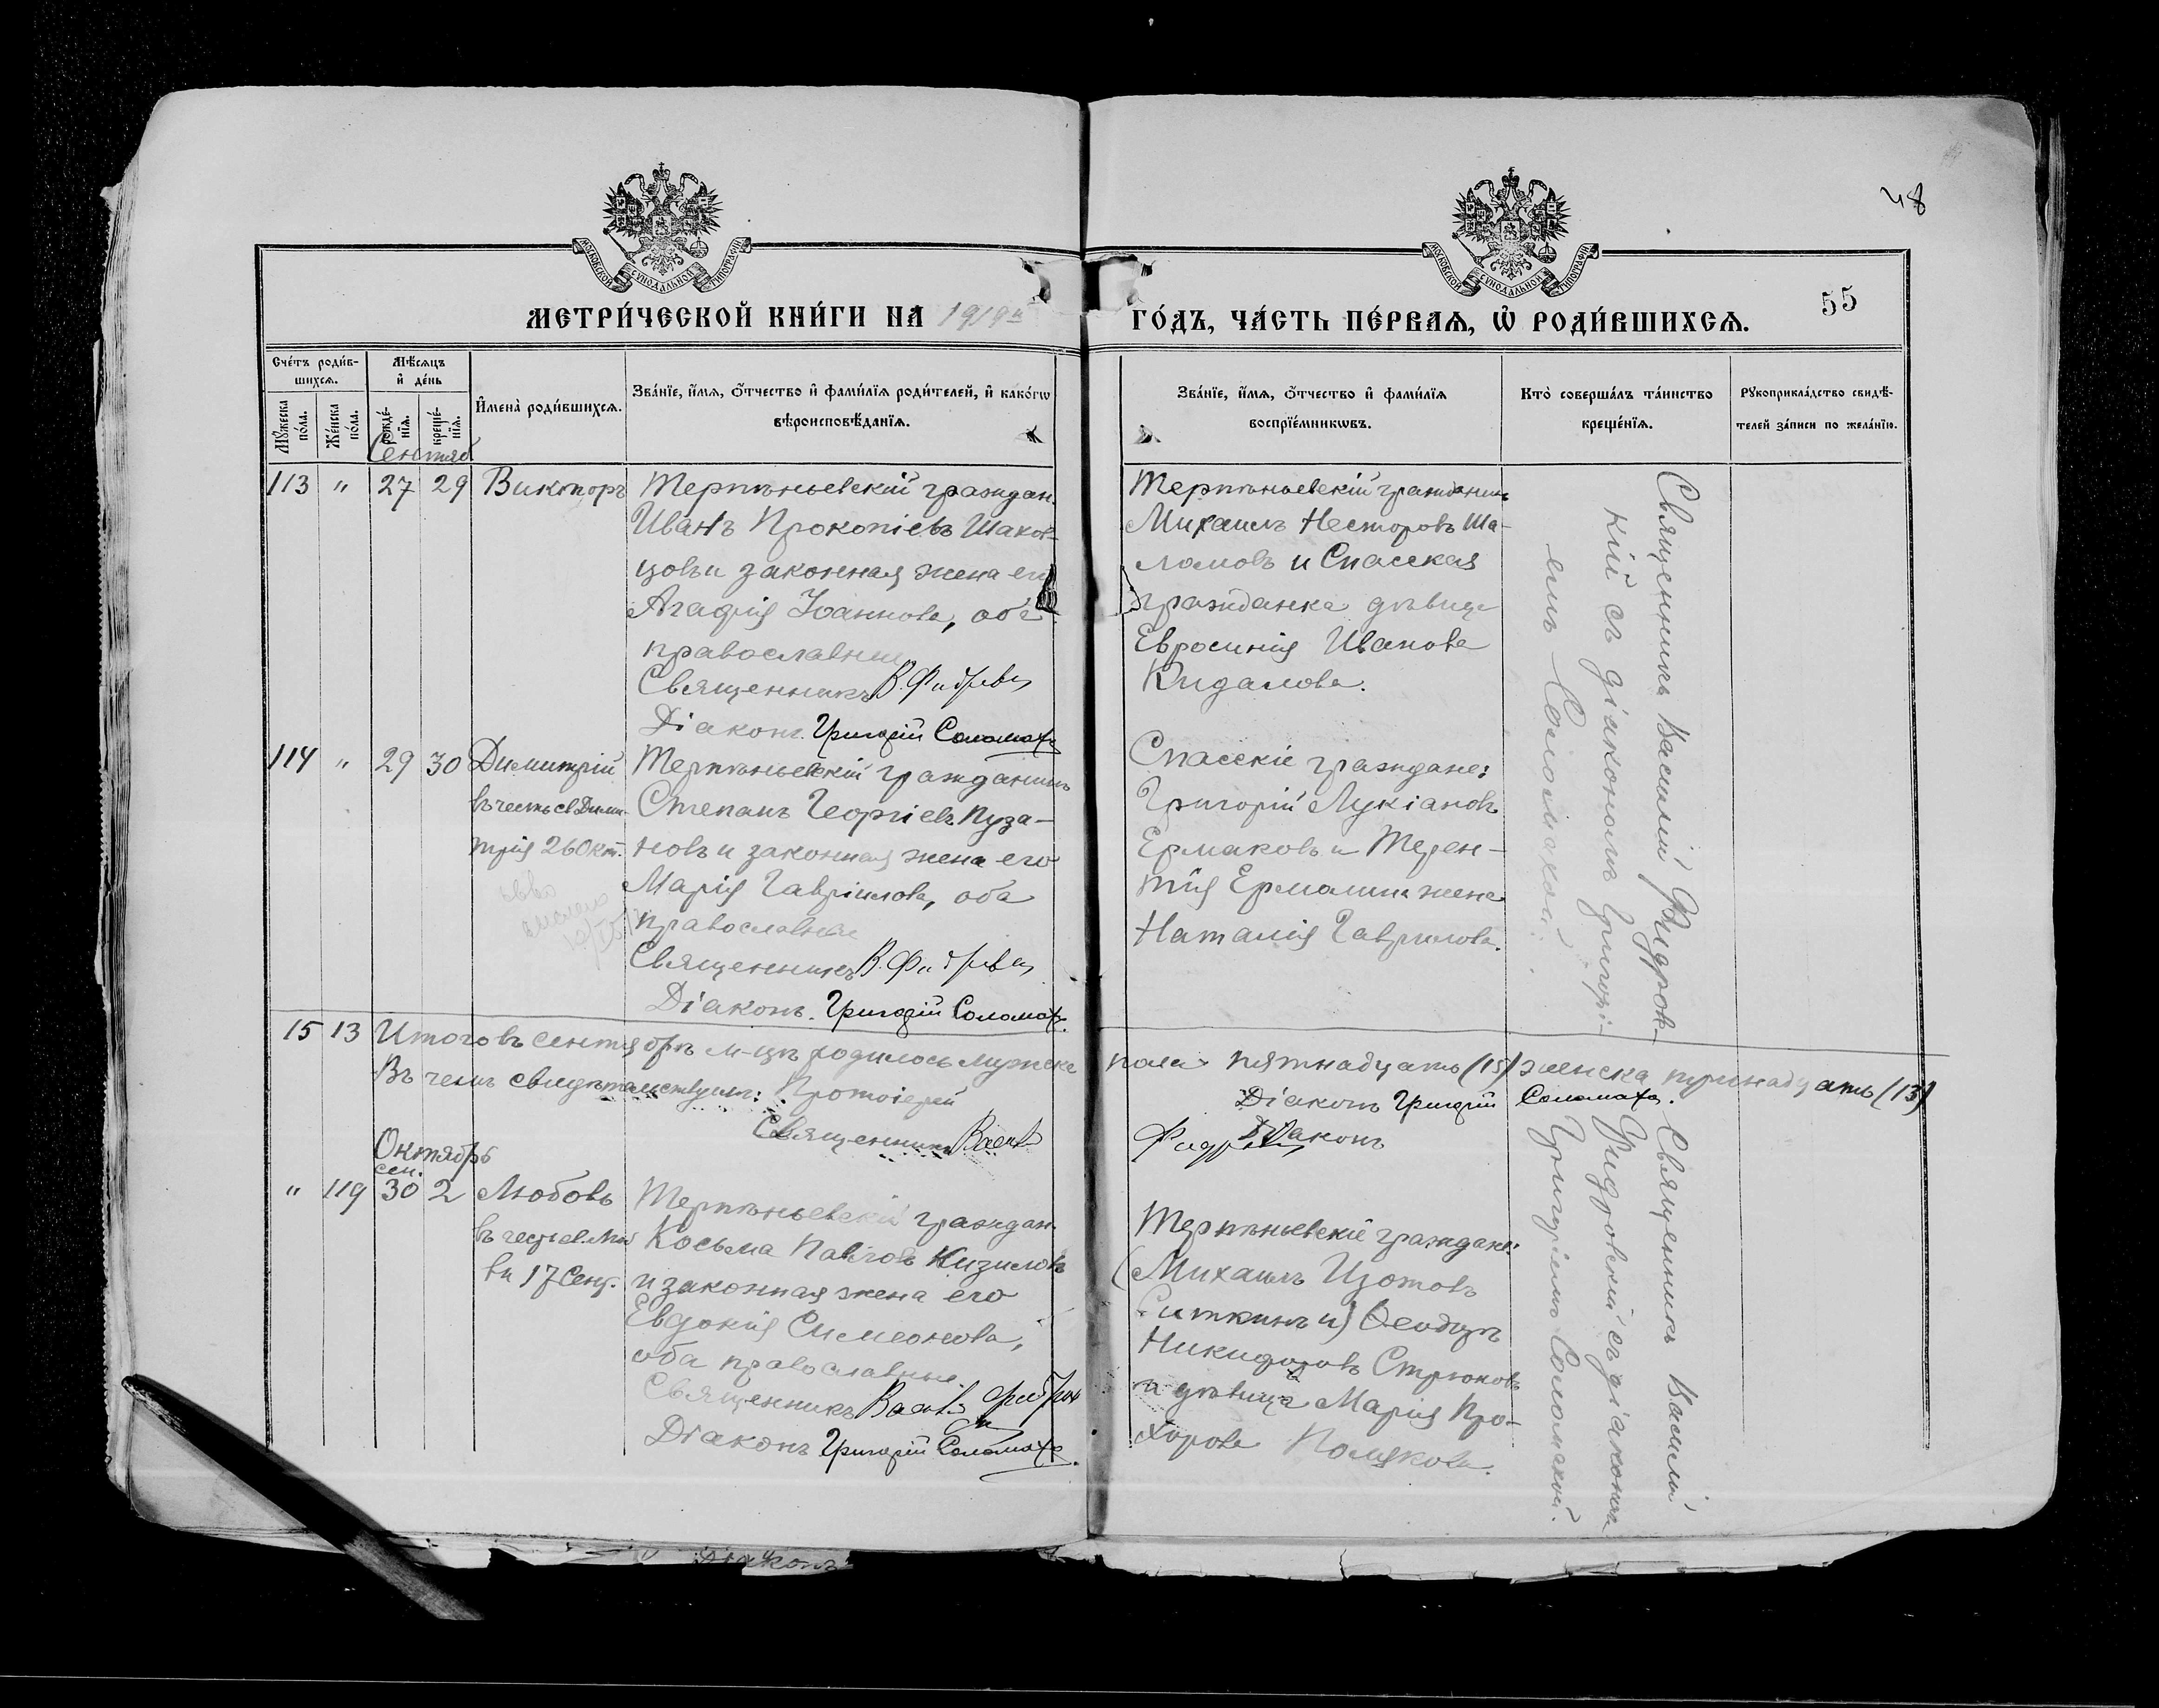 48
МОСКОВСКОЙ СУНОДАЛЬНОЙ ТИПОГРАФІИ
МОСКОВСКОЙ СУНОДАЛЬНОЙ ТИПОГРАФІИ
МЕТРИ́ЧЕСКОЙ КНИ́ГИ НА 1919й
ГО́ДЪ, ЧА́СТЬ ПЕ́РВАѦ, Ѡ҆ РОДИ́ВШИХСѦ.
55
Сче́тъ роди́в-
шихсѧ.
Мѣ́сѧцъ
и҆ де́нь
Мꙋ́жеска
по́ла.
Же́нска
по́ла.
рожде́-
нїѧ.
креще́-
нїѧ.
И҆мена̀ роди́вшихсѧ.
Зва́нїе, и҆́мѧ, ѻ҆́тчество и҆ фами́лїѧ роди́телей, и҆ како́гѡ
вѣроисповѣ́данїѧ.
Зва́нїе, и҆́мѧ, ѻ҆́тчество и҆ фами́лїѧ
воспрїе́мникѡвъ.
Кто̀ соверша́лъ та́инство
креще́нїѧ.
Рꙋкоприкла́дство свидѣ́-
телей за́писи по жела́нїю.
Сентяб
113 " 27 29 Викторъ
Терпѣньевскій граждан.
Иванъ Прокопіевъ Шаков-
цовъ и законная жена его
Агафія Іоаннова, оба
православные
Священникъ В. Фидров
Діаконъ Григорій Соломаха
Терпѣньевскій гражданинъ
Михаилъ Несторовъ Ша-
ламовъ и Спасская
гражданка дѣвица
Евросинія Иванова
Кидалова.
Священникъ Василій Фидров-
кій съ діакономъ Григорі-
емъ Соломахой.
114 " 29 30 Димитрій
въ честь св. Дими-
трія 26 Окт.
Терпѣньевскій гражданинъ
Степанъ Георгіевъ Пуза-
новъ и законная жена его
Марія Гавріилова, оба
православные
Священникъ В. Фидров
Діаконъ Григорій Соломаха.
Спасскіе граждане:
Григорій Лукіановъ
Ермаковъ и Терен-
тія Ермолина жена
Наталія Гаврилова.
15 13 Итого въ сентябрѣ м-цѣ родилось мужска
пола пятнадцать (15) женска тринадцать (13)
Въ чемъ свидѣтельствуемъ: Протоіерей
Діаконъ Григорій Соломаха.
Священникъ Васил
Діаконъ
Октябрь
сен.
" 119 30 2 Любовь
въ честь св. Люб
ви 17 Сент.
Терпѣньевскій граждан.
Косьма Павловъ Кизиловъ
и законная жена его
Евдокія Симеонова,
оба православные.
Священникъ Васил Фидров
Діаконъ Григорій Соломаха.
Терпѣньевскіе граждане:
(Михаилъ Изотовъ
Ситкинъ и) Ѳеодоръ
Никифоровъ Стрюковъ
и дѣвица Марія Про-
хорова Полякова.
Священникъ Василій
Фидровскій съ діакономъ
Григоріемъ Соломахой.
Діаконъ